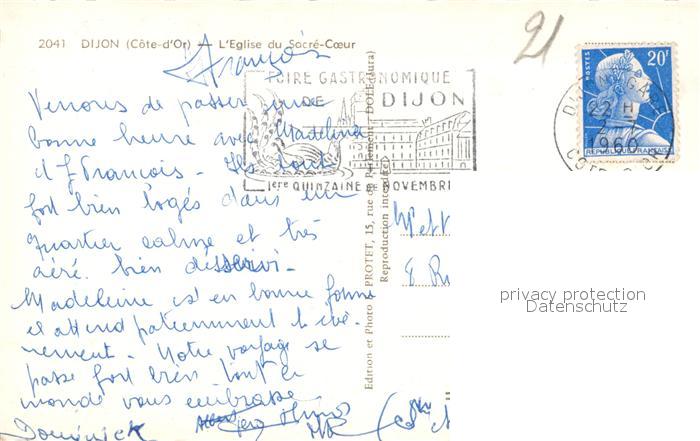 2041 DIJON (Côte-d'Or) — L'Eglise du Sacré-Cœur
21
François
FOIRE GASTRONOMIQUE
DE DIJON
1ère QUINZAINE DE NOVEMBRE
POSTES 20F
REPUBLIQUE FRANÇAISE
22 H
1960
Venons de passer une
bonne heure avec Madeleine
et François - Ils sont
fort bien logés dans un
quartier calme et très
aéré. bien desservi -
Madeleine est en bonne forme
et attend patiemment l'évé-
nement - Notre voyage se
passe fort bien tout le
monde vous embrasse
Dominick
Edition et Photo PROTET, 15, rue du Parlement - DOLE (Jura)
Reproduction interdite
privacy protection
Datenschutz